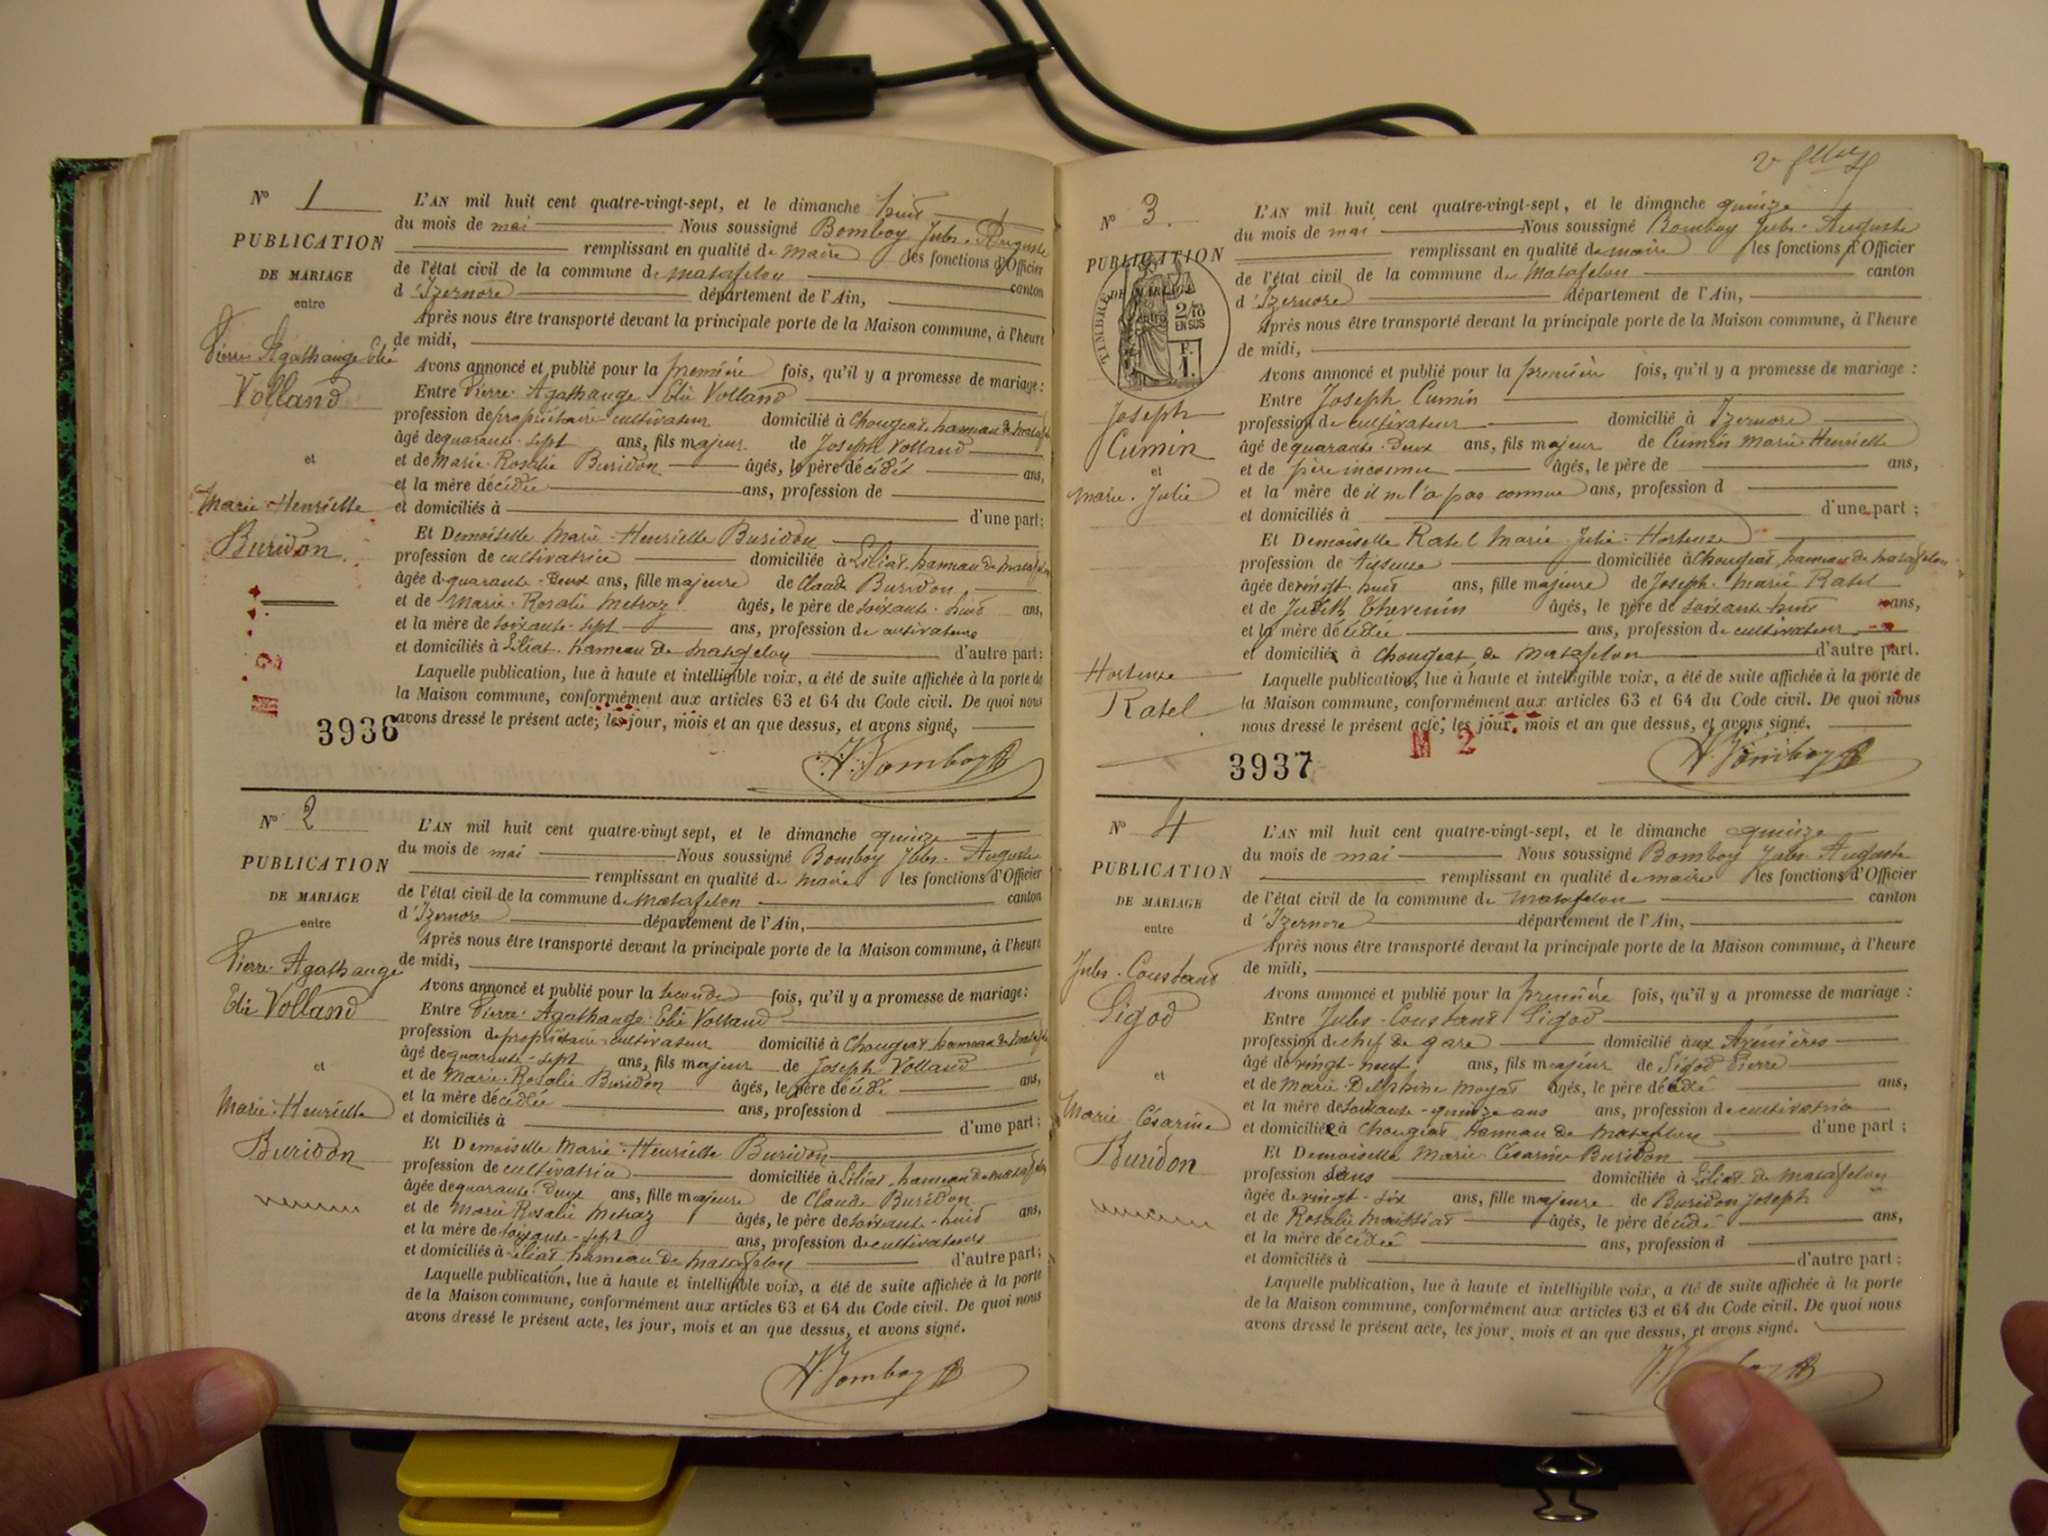 N° 1
PUBLICATION
DE MARIAGE
entre
Pierre Agathange Elie
Volland
et
Marie-Henriette
Buridon
L'AN mil huit cent quatre-vingt-sept, et le dimanche huit
du mois de mai Nous soussigné Bomboy Jules-Auguste
remplissant en qualité de maire les fonctions d'Officier
de l'état civil de la commune de matafelon canton
d'Izernore département de l'Ain,
Après nous être transporté devant la principale porte de la Maison commune, à l'heure
de midi,
Avons annoncé et publié pour la première fois, qu'il y a promesse de mariage :
Entre Pierre-Agathange-Elie Volland
profession de propriétaire-cultivateur domicilié à Chougeat, hameau de
âgé de quarante-sept ans, fils majeur de Joseph Volland
et de Marie-Rosalie Buridon âgés, le père décédés ans,
et la mère décédée ans, profession de
et domiciliés à d'une part;
Et Demoiselle Marie-Henriette Buridon
profession de cultivatrice domiciliée à Siliat, hameau de matafelon
âgée d quarante-deux ans, fille majeure de Claude Buridon
et de Marie-Rosalie Metraz âgés, le père de soixante-huit ans,
et la mère de soixante-sept ans, profession de cultivateurs
et domiciliés à Siliat hameau de matafelon d'autre part:
Laquelle publication, lue à haute et intelligible voix, a été de suite affichée à la porte de
la Maison commune, conformément aux articles 63 et 64 du Code civil. De quoi nous
avons dressé le présent acte, les jour, mois et an que dessus, et avons signé,
3936
Bomboy
N° 2
PUBLICATION
DE MARIAGE
entre
Pierre-Agathange
Elie Volland
et
Marie-Henriette
Buridon
L'AN mil huit cent quatre-vingt sept, et le dimanche quinze
du mois de mai Nous soussigné Bomboy Jules-Auguste
remplissant en qualité de maire les fonctions d'Officier
de l'état civil de la commune de Matafelon canton
d'Izernore département de l'Ain,
Après nous être transporté devant la principale porte de la Maison commune, à l'heure
de midi,
Avons annoncé et publié pour la seconde fois, qu'il y a promesse de mariage:
Entre Pierre-Agathange-Elie Volland
profession de propriétaire-cultivateur domicilié à Chougeat, hameau de
âgé de quarante-sept ans, fils majeur de Joseph Volland
et de Marie-Rosalie Buridon âgés, le père décédé ans,
et la mère décédée ans, profession d
et domiciliés à d'une part;
Et Demoiselle Marie-Henriette Buridon
profession de cultivatrice domiciliée à Siliat, hameau de matafelon
âgée de quarante-deux ans, fille majeure de Claude Buridon
et de Marie Rosalie Metraz âgés, le père de soixante-huit ans,
et la mère de soixante-sept ans, profession de cultivateurs
et domiciliés à Siliat hameau de matafelon d'autre part;
Laquelle publication, lue à haute et intelligible voix, a été de suite affichée à la porte
de la Maison commune, conformément aux articles 63 et 64 du Code civil. De quoi nous
avons dressé le présent acte, les jour, mois et an que dessus, et avons signé.
Bomboy
N° 3.
PUBLICATION
DE MARIAGE
TIMBRE
2/10
EN SUS
F.
1.
Joseph
Cumin
et
Marie-Julie
Hortense
Ratel
L'AN mil huit cent quatre-vingt-sept, et le dimanche quinze
du mois de mai Nous soussigné Bomboy Jules-Auguste
remplissant en qualité de maire les fonctions d'Officier
de l'état civil de la commune de Matafelon canton
d'Izernore département de l'Ain,
Après nous être transporté devant la principale porte de la Maison commune, à l'heure
de midi,
Avons annoncé et publié pour la première fois, qu'il y a promesse de mariage :
Entre Joseph Cumin
profession de cultivateur domicilié à Izernore
âgé de quarante-deux ans, fils majeur de Cumin Marie-Henriette
et de père inconnu âgés, le père de ans,
et la mère de il n'l'a pas connue ans, profession d
et domiciliés à d'une part ;
Et Demoiselle Ratel Marie-Julie-Hortense
profession de tisseuse domiciliée à Chougeat, hameau de matafelon
âgée de vingt-huit ans, fille majeure de Joseph-Marie Ratel
et de Judith Thevenin âgés, le père de soixante huit ans,
et la mère décédée ans, profession de cultivateur
et domiciliés à Chougeat de Matafelon d'autre part.
Laquelle publication, lue à haute et intelligible voix, a été de suite affichée à la porte de
la Maison commune, conformément aux articles 63 et 64 du Code civil. De quoi nous
nous dressé le présent acte, les jour, mois et an que dessus, et avons signé.
M 2
3937
Bomboy
N° 4
PUBLICATION
DE MARIAGE
entre
Jules-Constant
Sigod
et
Marie-Césarine
Buridon
L'AN mil huit cent quatre-vingt-sept, et le dimanche quinze
du mois de mai Nous soussigné Bomboy Jules-Auguste
remplissant en qualité de maire les fonctions d'Officier
de l'état civil de la commune de Matafelon canton
d'Izernore département de l'Ain,
Après nous être transporté devant la principale porte de la Maison commune, à l'heure
de midi,
Avons annoncé et publié pour la première fois, qu'il y a promesse de mariage :
Entre Jules-Constant Sigod
profession de chef de gare domicilié aux Avenières
âgé de vingt-neuf ans, fils majeur de Sigod Pierre
et de Marie-Delphine Moyat âgés, le père décédé ans,
et la mère de soixante-quinze ans ans, profession de cultivatrice
et domiciliée à Chougeat hameau de Matafelon d'une part ;
Et Demoiselle Marie-Césarine Buridon
profession sans domiciliée à Siliat de Matafelon
âgée de vingt-six ans, fille majeure de Buridon Joseph
et de Rosalie Maissiat âgés, le père décédé ans,
et la mère décédée ans, profession d
et domiciliés à d'autre part :
Laquelle publication, lue à haute et intelligible voix, a été de suite affichée à la porte
de la Maison commune, conformément aux articles 63 et 64 du Code civil. De quoi nous
avons dressé le présent acte, les jour, mois et an que dessus, et avons signé.